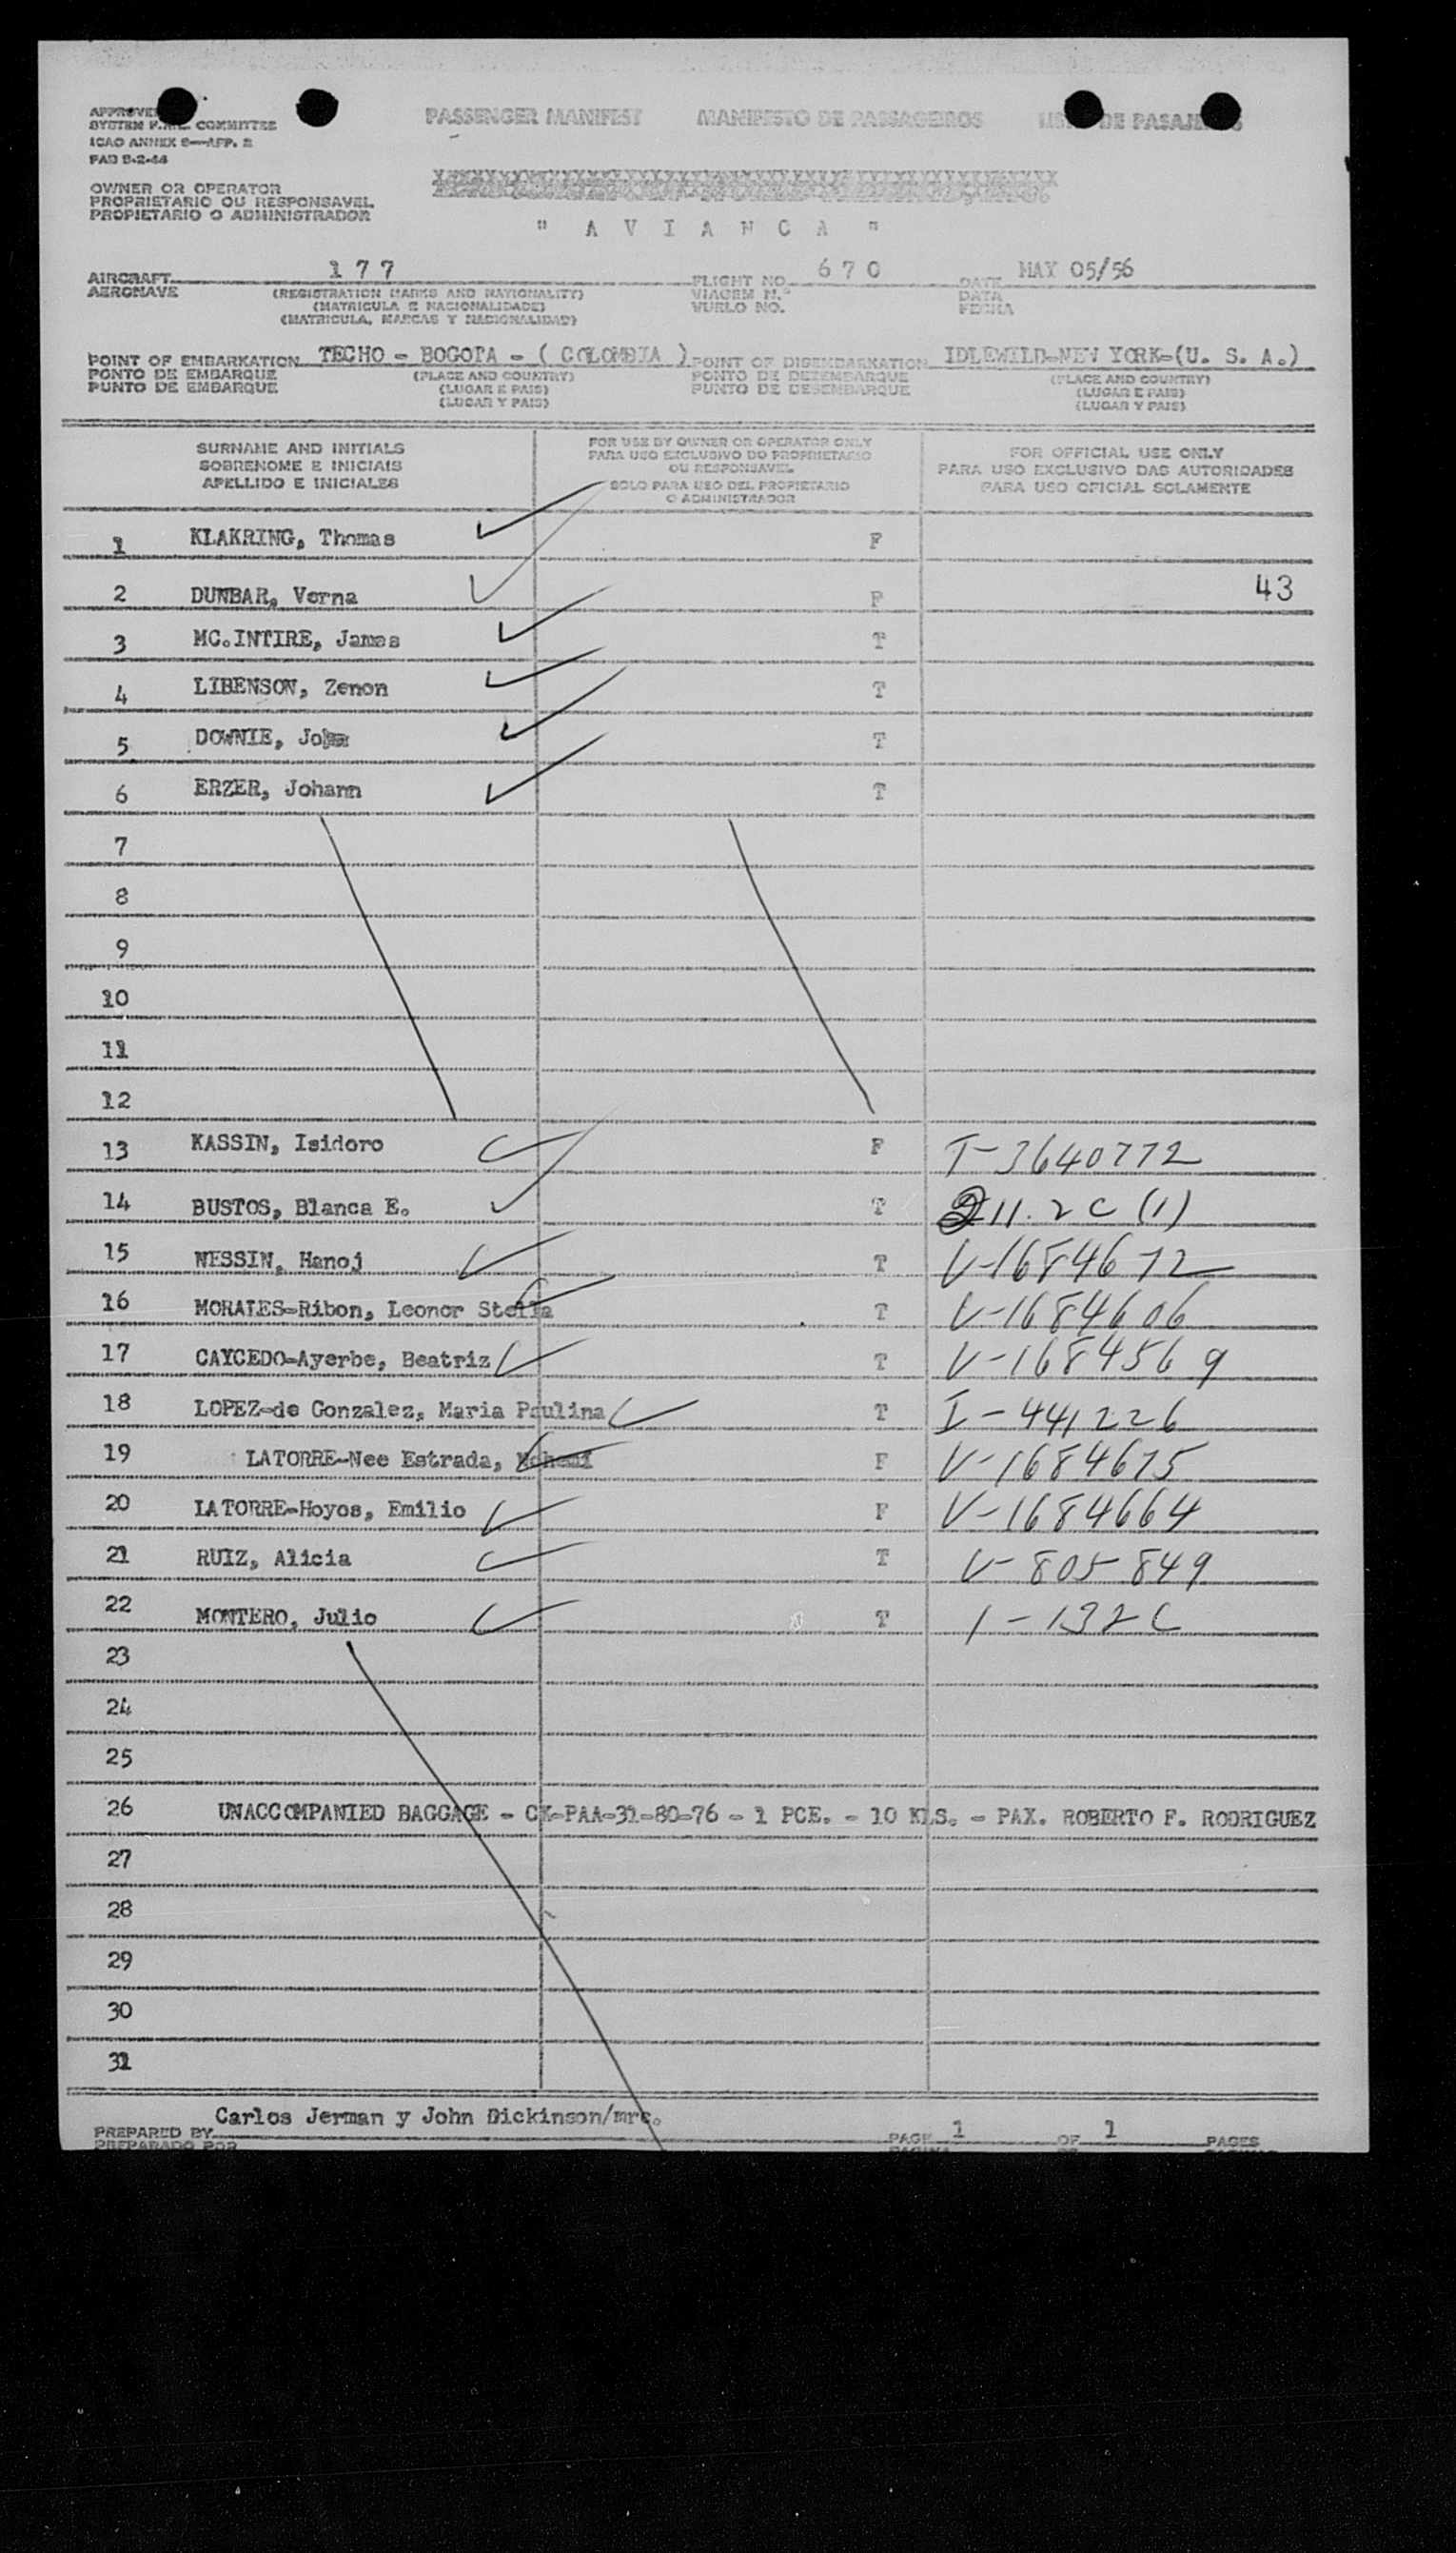 PASSENGER MANIFEST MANIFESTO DE PASSAGEIROS DE
SYSTEM COMMITTEE
ICAO ANNEX 9—APP. 2
PAD 9-2-44
OWNER OR OPERATOR
PROPRIETARIO OU RESPONSAVEL
PROPIETARIO O ADMINISTRADOR
" A V I A N C A "
AIRCRAFT 177 FLIGHT NO. 670 DATE MAY 05/56
AERONAVE (REGISTRATION MARKS AND NATIONALITY) VIAGEM N.º DATA
(MATRICULA E NACIONALIDADE) VUELO NO. FECHA
(MATRICULA, MARCAS Y NACIONALIDAD)
POINT OF EMBARKATION TECHO - BOGOTA - ( COLOMBIA ) POINT OF DISEMBARKATION IDLEWILD-NEW YORK-(U. S. A.)
PONTO DE EMBARQUE (PLACE AND COUNTRY) PONTO DE DESEMBARQUE (PLACE AND COUNTRY)
PUNTO DE EMBARQUE (LUGAR E PAIS) PUNTO DE DESEMBARQUE (LUGAR E PAIS)
(LUGAR Y PAIS) (LUGAR Y PAIS)
SURNAME AND INITIALS FOR USE BY OWNER OR OPERATOR ONLY FOR OFFICIAL USE ONLY
SOBRENOME E INICIAIS PARA USO EXCLUSIVO DO PROPRIETARIO PARA USO EXCLUSIVO DAS AUTORIDADES
APELLIDO E INICIALES OU RESPONSAVEL PARA USO OFICIAL SOLAMENTE
SOLO PARA USO DEL PROPIETARIO
O ADMINISTRADOR
1 KLAKRING, Thomas F
2 DUNBAR, Verna F 43
3 MC.INTIRE, James T
4 LIBENSON, Zenon T
5 DOWNIE, T
6 ERZER, Johann T
7
8
9
10
11
12
13 KASSIN, Isidoro F T-3640772
14 BUSTOS, Blanca E. T 211.2C (1)
15 NESSIN, Hanoj T V-1684672
16 MORALES-Ribon, Leonor Stella T V-1684606
17 CAYCEDO-Ayerbe, Beatriz T V-1684569
18 LOPEZ-de Gonzalez, Maria Paulina T I-441226
19 LATORRE-Nee Estrada, F V-1684675
20 LATORRE-Hoyos, Emilio F V-1684664
21 RUIZ, Alicia T V-805849
22 MONTERO, Julio T 1-132C
23
24
25
26 UNACCOMPANIED BAGGAGE - CK-PAA-31-80-76 - 1 PCE. - 10 KLS. - PAX. ROBERTO F. RODRIGUEZ
27
28
29
30
31
PREPARED BY Carlos Jerman y John Dickinson/mrc. PAGE 1 OF 1 PAGES
PREPARADO POR